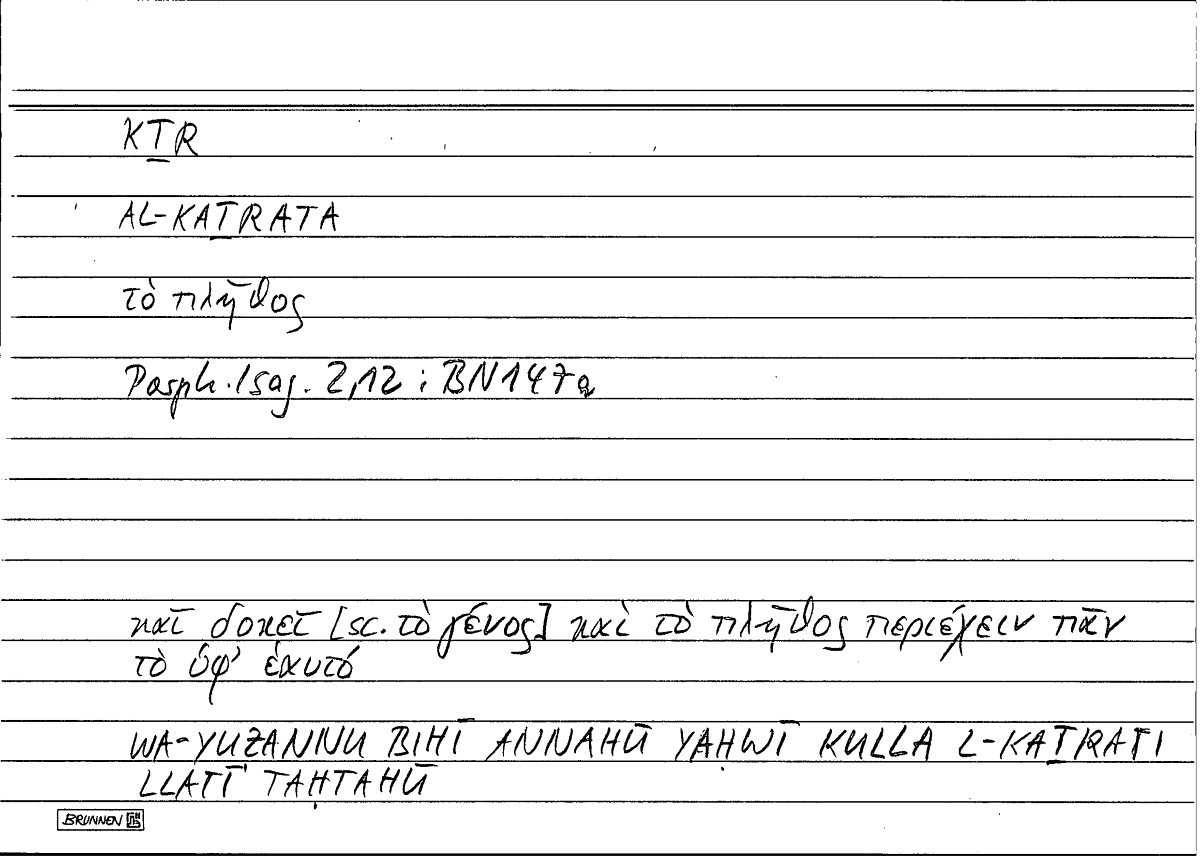 KṮR
AL-KAṮRATA
τὸ πλῆθος
Porph. Isag. 2,12 : BN147a
καὶ δοκεῖ [sc. τὸ γένος] καὶ τὸ πλῆθος περιέχειν πᾶν
τὸ ὑφ' ἑαυτό
WA-YUẒANNU BIHĪ ANNAHŪ YAḤWĪ KULLA L-KAṮRATI
LLATĪ TAḤTAHŪ
BRUNNEN